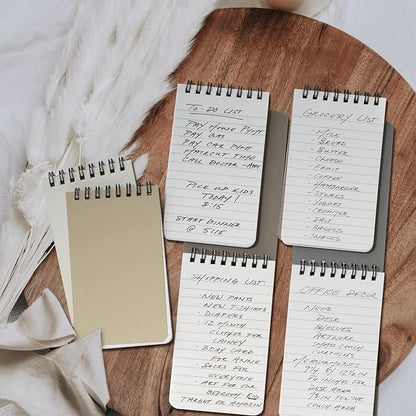 TO-DO LIST
PAY HOUSE PYMT
PAY GAS
PAY CAR PYMT
HAIRCUT TIME
CALL DOCTOR - APPT
PICK UP KIDS
TODAY!
@ 3:15
START DINNER
@ 5:15
GROCERY LIST
- MILK
- BREAD
- BUTTER
- CHEESE
- FRUIT
- COFFEE
- HAMBURGER
- STEAKS
- YOGURT
- CREAMER
- SALT
- BAGELS
- SNACKS
SHOPPING LIST:
- NEW PANTS
- NEW T-SHIRTS
- DIAPERS
- 12 MONTH
CLOTHES FOR
- BDAY CARD
FOR ANNIE
- SOCKS FOR
EVERYONE
- ART FOR OUR
BEDROOM
TARGET OR AMAZON
OFFICE DECOR
NEED
DESK
SHELVES
ARTWORK
CHAIR
CURTAINS
MEASUREMENTS
FOR
DESK AREA
FOR THE
AREA